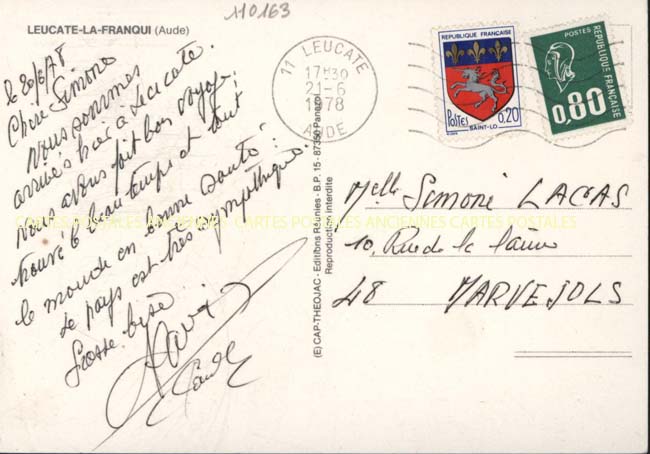 110163
LEUCATE-LA-FRANQUI (Aude)
le 20/6/78
Chère Simone
Nous sommes
arrivés hier à Leucate.
Nous avons fait bon voyage,
trouvé le beau temps et tout
le monde en bonne santé :
Le pays est très sympathique.
Grosse bise
11 LEUCATE
17H30
21-6
1978
AUDE
REPUBLIQUE FRANÇAISE
POSTES 0,20
SAINT-LO
POSTES
REPUBLIQUE FRANÇAISE
0,80
(E) CAP-THEOJAC - Editions Réunies - B.P. 15 - 87350 Panazol
Reproduction interdite
Melle Simone LACAS
10, Rue de la
48 MARVEJOLS
CARTES POSTALES ANCIENNES CARTES POSTALES ANCIENNES CARTES POSTALES